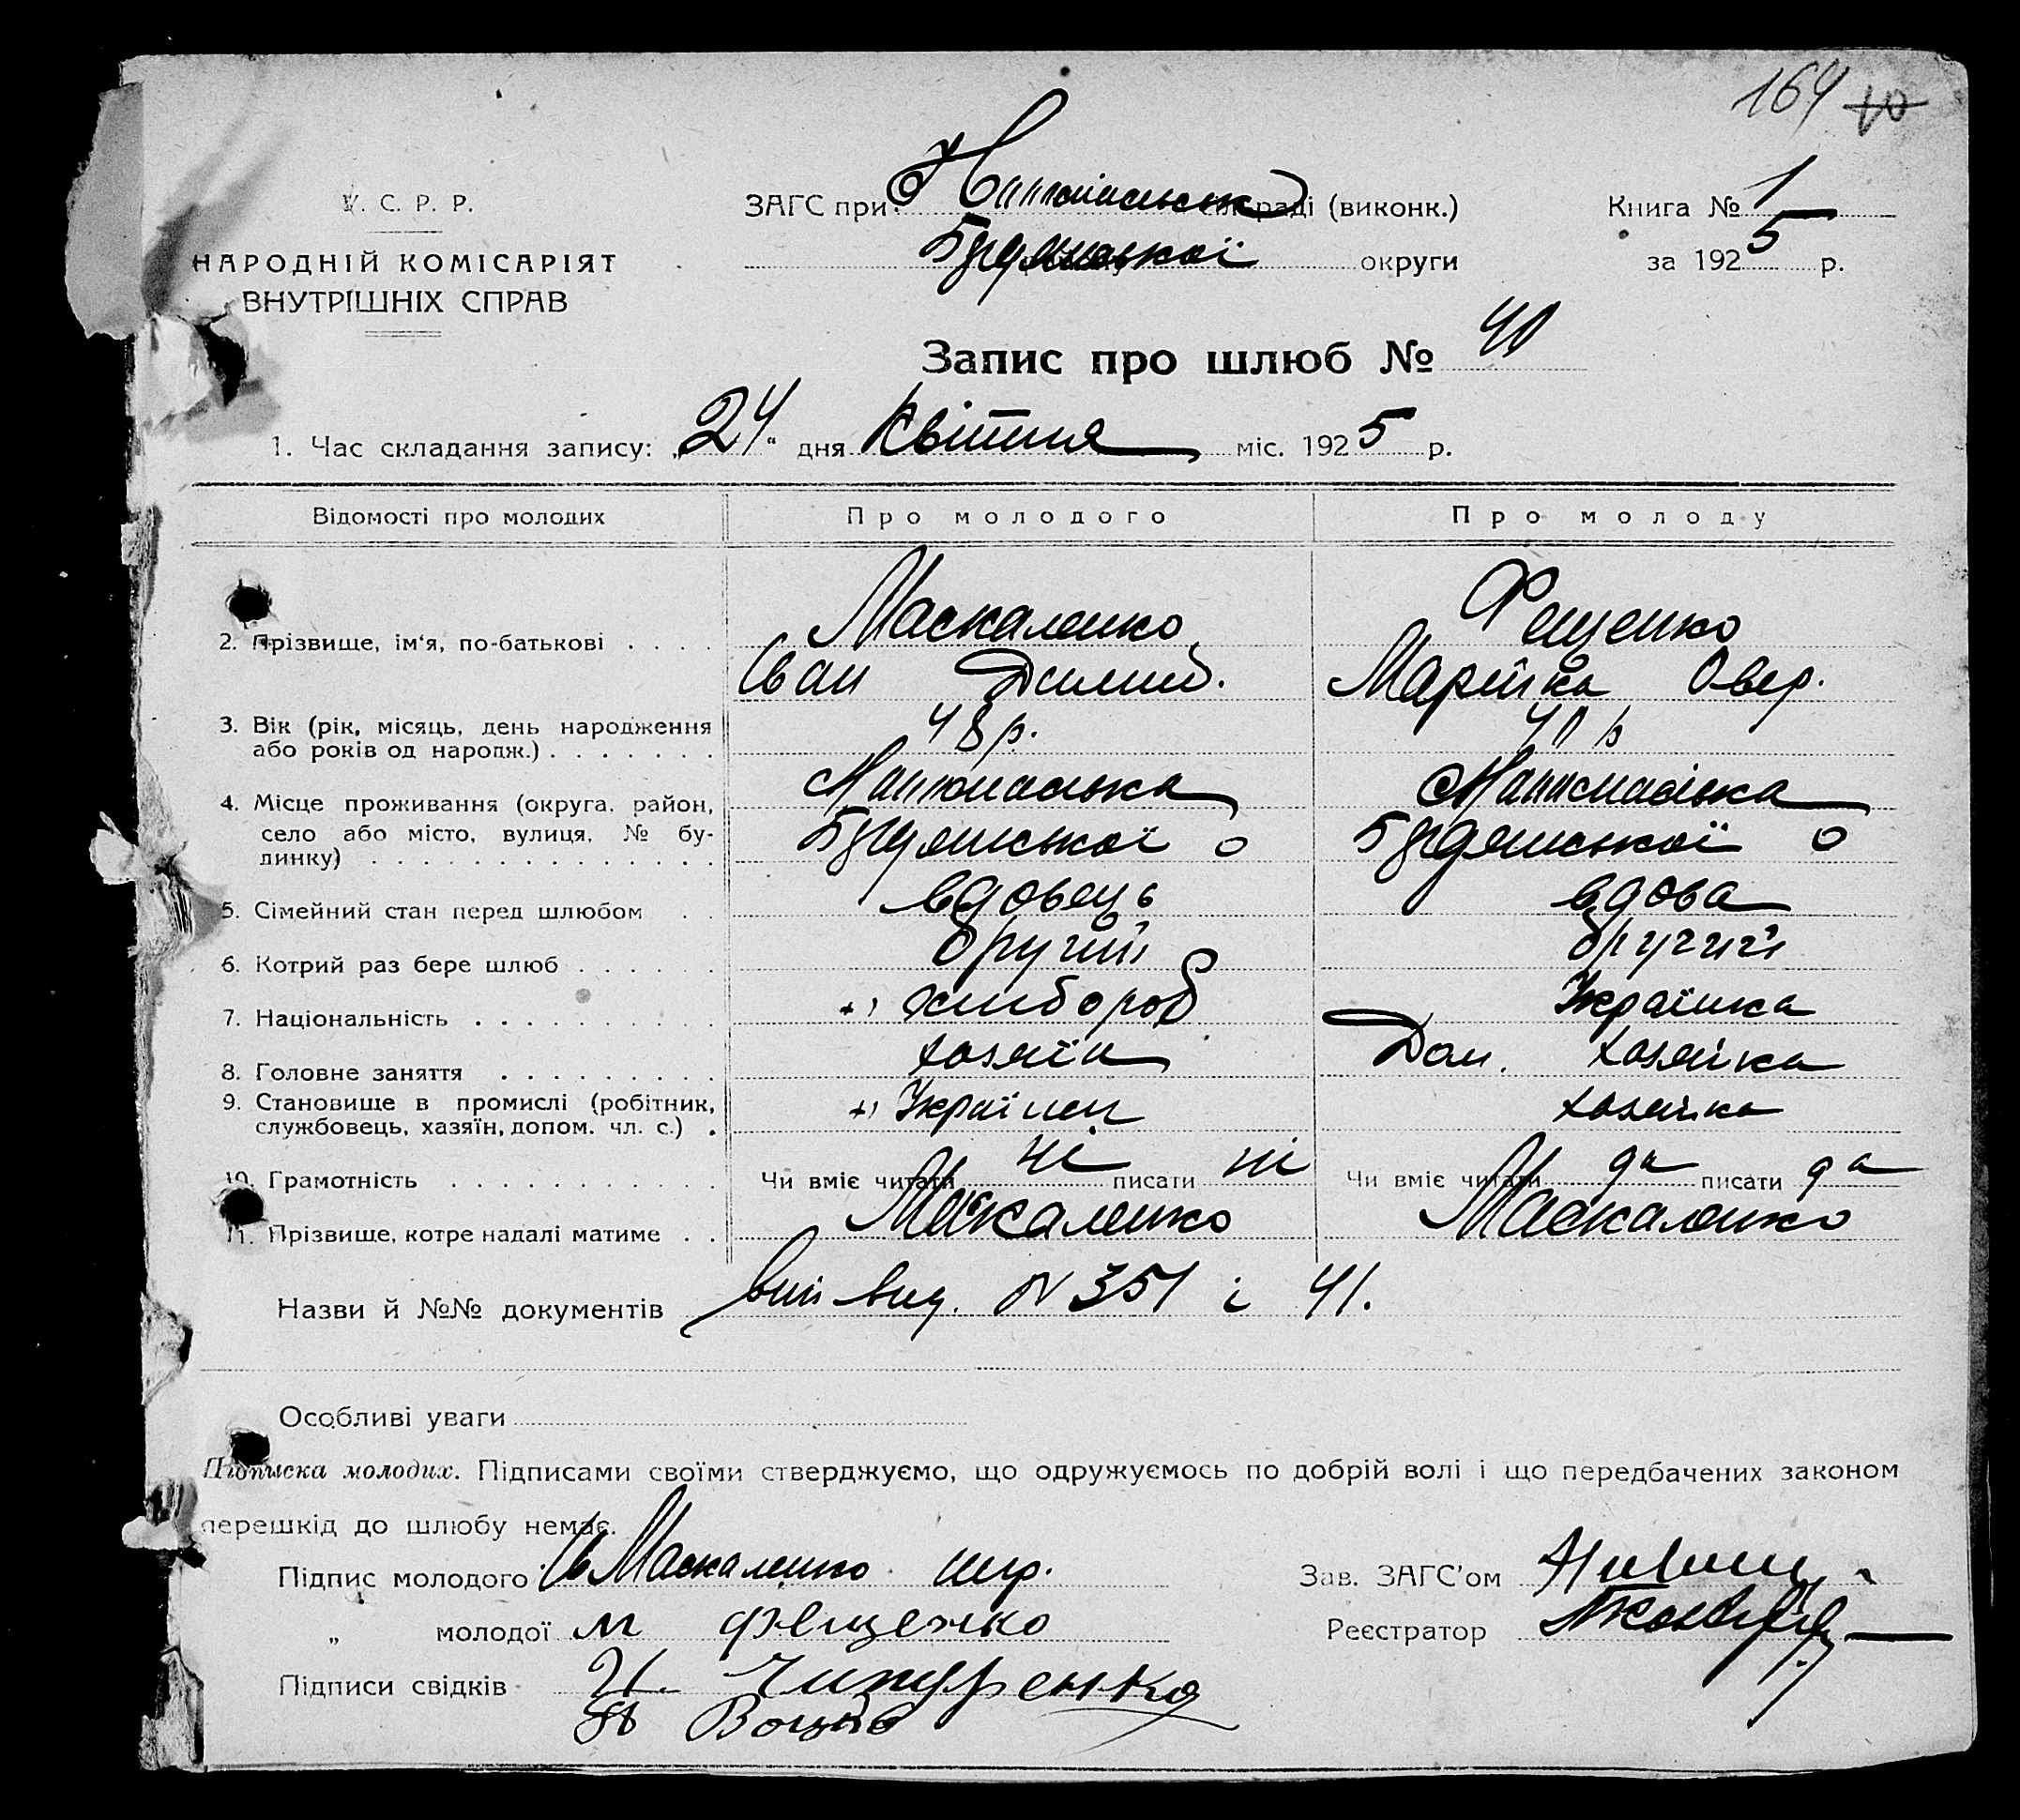 164 10
У. С. Р. Р.
НАРОДНІЙ КОМІСАРІЯТ
ВНУТРІШНІХ СПРАВ
ЗАГС при раді (виконк.)
Бердянської округи
Книга № 1
за 1925 р.
Запис про шлюб № 40
1. Час складання запису: „24" дня Квітня міс. 1925 р.
Відомості про молодих Про молодого Про молоду
2. Прізвище, ім'я, по-батькові . . . . Маскаленко Фещенко
Іван Дмит. Марійка Овер.
3. Вік (рік, місяць, день народження
або років од народж.) . . . . . . . 48 р. 40 р
4. Місце проживання (округа, район,
село або місто, вулиця, № бу-
динку) . . . . . . . . . . . . . . . Бердянської о Бердянської о
5. Сімейний стан перед шлюбом . . вдовець вдова
6. Котрий раз бере шлюб . . . . . . другий другий
7. Національність . . . . . . . . . . +) хлібороб Українка
8. Головне заняття . . . . . . . . . хазяїн Дом. хазяйка
9. Становище в промислі (робітник,
службовець, хазяїн, допом. чл. с.) . +) Українец хазяйка
10. Грамотність . . . . . . . . . . . Чи вміє читати ні писати ні Чи вміє читати да писати да
11. Прізвище, котре надалі матиме . . Маскаленко Маскаленко
Назви й №№ документів вид. N 351 і 41.
Особливі уваги
Підписка молодих. Підписами своїми стверджуємо, що одружуємось по добрій волі і що передбачених законом
перешкід до шлюбу немає.
Підпис молодого Ів Маскаленко
„ молодої М Фещенко
Підписи свідків
Зав. ЗАГС'ом
Реєстратор